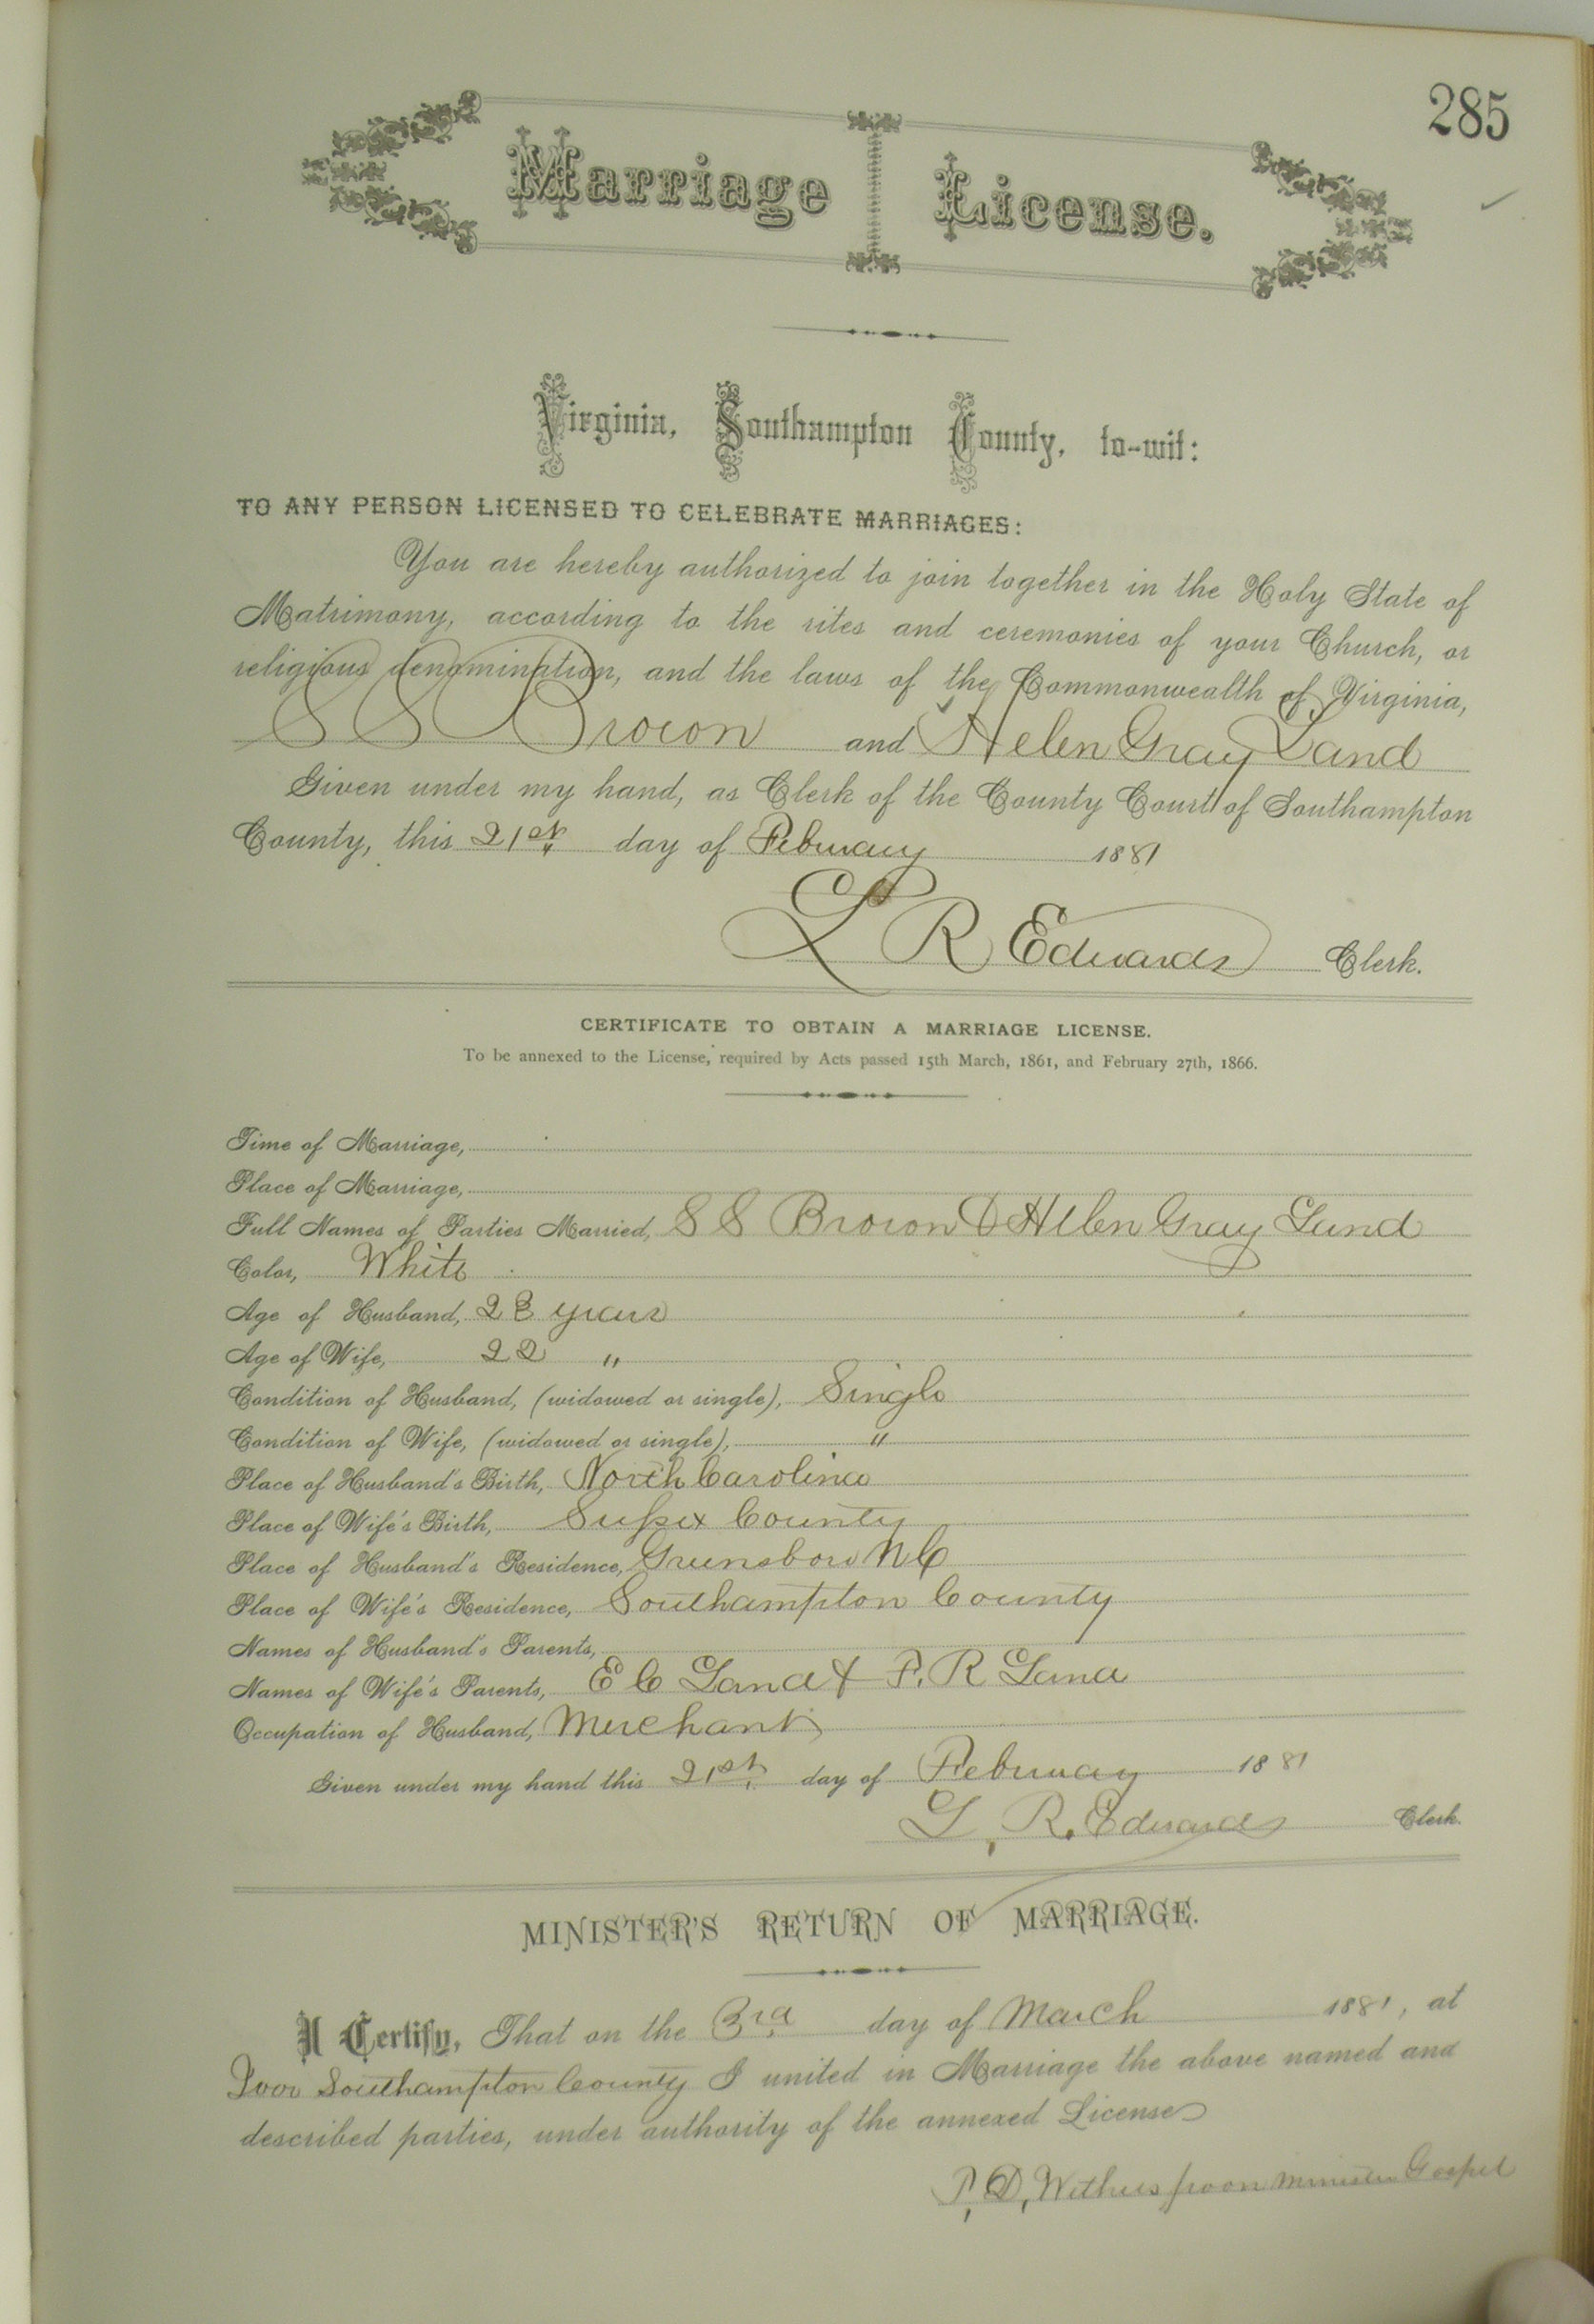 285
Marriage License.
Virginia, Southampton County, to-wit:
TO ANY PERSON LICENSED TO CELEBRATE MARRIAGES:
You are hereby authorized to join together in the Holy State of
Matrimony, according to the rites and ceremonies of your Church, or
religious denomination, and the laws of the Commonwealth of Virginia,
S S Brown and Helen Gray Land
Given under my hand, as Clerk of the County Court of Southampton
County, this 21st day of February 1881
L R Edwards Clerk.
CERTIFICATE TO OBTAIN A MARRIAGE LICENSE.
To be annexed to the License, required by Acts passed 15th March, 1861, and February 27th, 1866.
Time of Marriage,
Place of Marriage,
Full Names of Parties Married, S S Brown & Helen Gray Land
Color, White
Age of Husband, 23 years
Age of Wife, 22 "
Condition of Husband, (widowed or single), Single
Condition of Wife, (widowed or single), "
Place of Husband's Birth, North Carolina
Place of Wife's Birth, Sussex County
Place of Husband's Residence, Greensboro N C
Place of Wife's Residence, Southampton County
Names of Husband's Parents,
Names of Wife's Parents, E C Land & P. R Land
Occupation of Husband, Merchant
Given under my hand this 21st day of February 1881
L. R. Edwards Clerk.
MINISTER'S RETURN OF MARRIAGE.
I Certify, That on the 3rd day of March 1881, at
Ivor Southampton County I united in Marriage the above named and
described parties, under authority of the annexed License
P. D. Witherspoon Minister Gospel